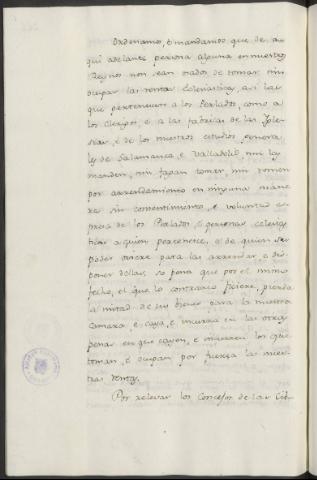 Ordenamos, è mandamos que de a-
qui adelante persona alguna en nuestros
Reynos non sean osados de tomar nin
ocupar las rentas Eclesiasticas, asi las
que pertenecen a los Perlados, como a
los Clerigos, è a las fabricas de las Igle-
sias, è de los nuestros estudios genera-
les de Salamanca, e Valladolid nin las
manden, nin fagan tomar, nin tomen
por arrendamiento en ninguna mane-
ra sin consentimiento, è voluntad ex-
presa de los Perlados, è personas eclesias-
ticas a quien pertenece, o de quien su
poder oviere para las arrendar, e dis-
poner dellas, so pena que por el mismo
fecho, el que lo contrario ficiere, pierda
la mitad de sus bienes para la nuestra
Camara, e caya, è incurra en las otras
penas en que cayen, è incurren los que
toman, è ocupan por fuerza las nues-
tras rentas.
Por relevar los Concejos de las Cib-